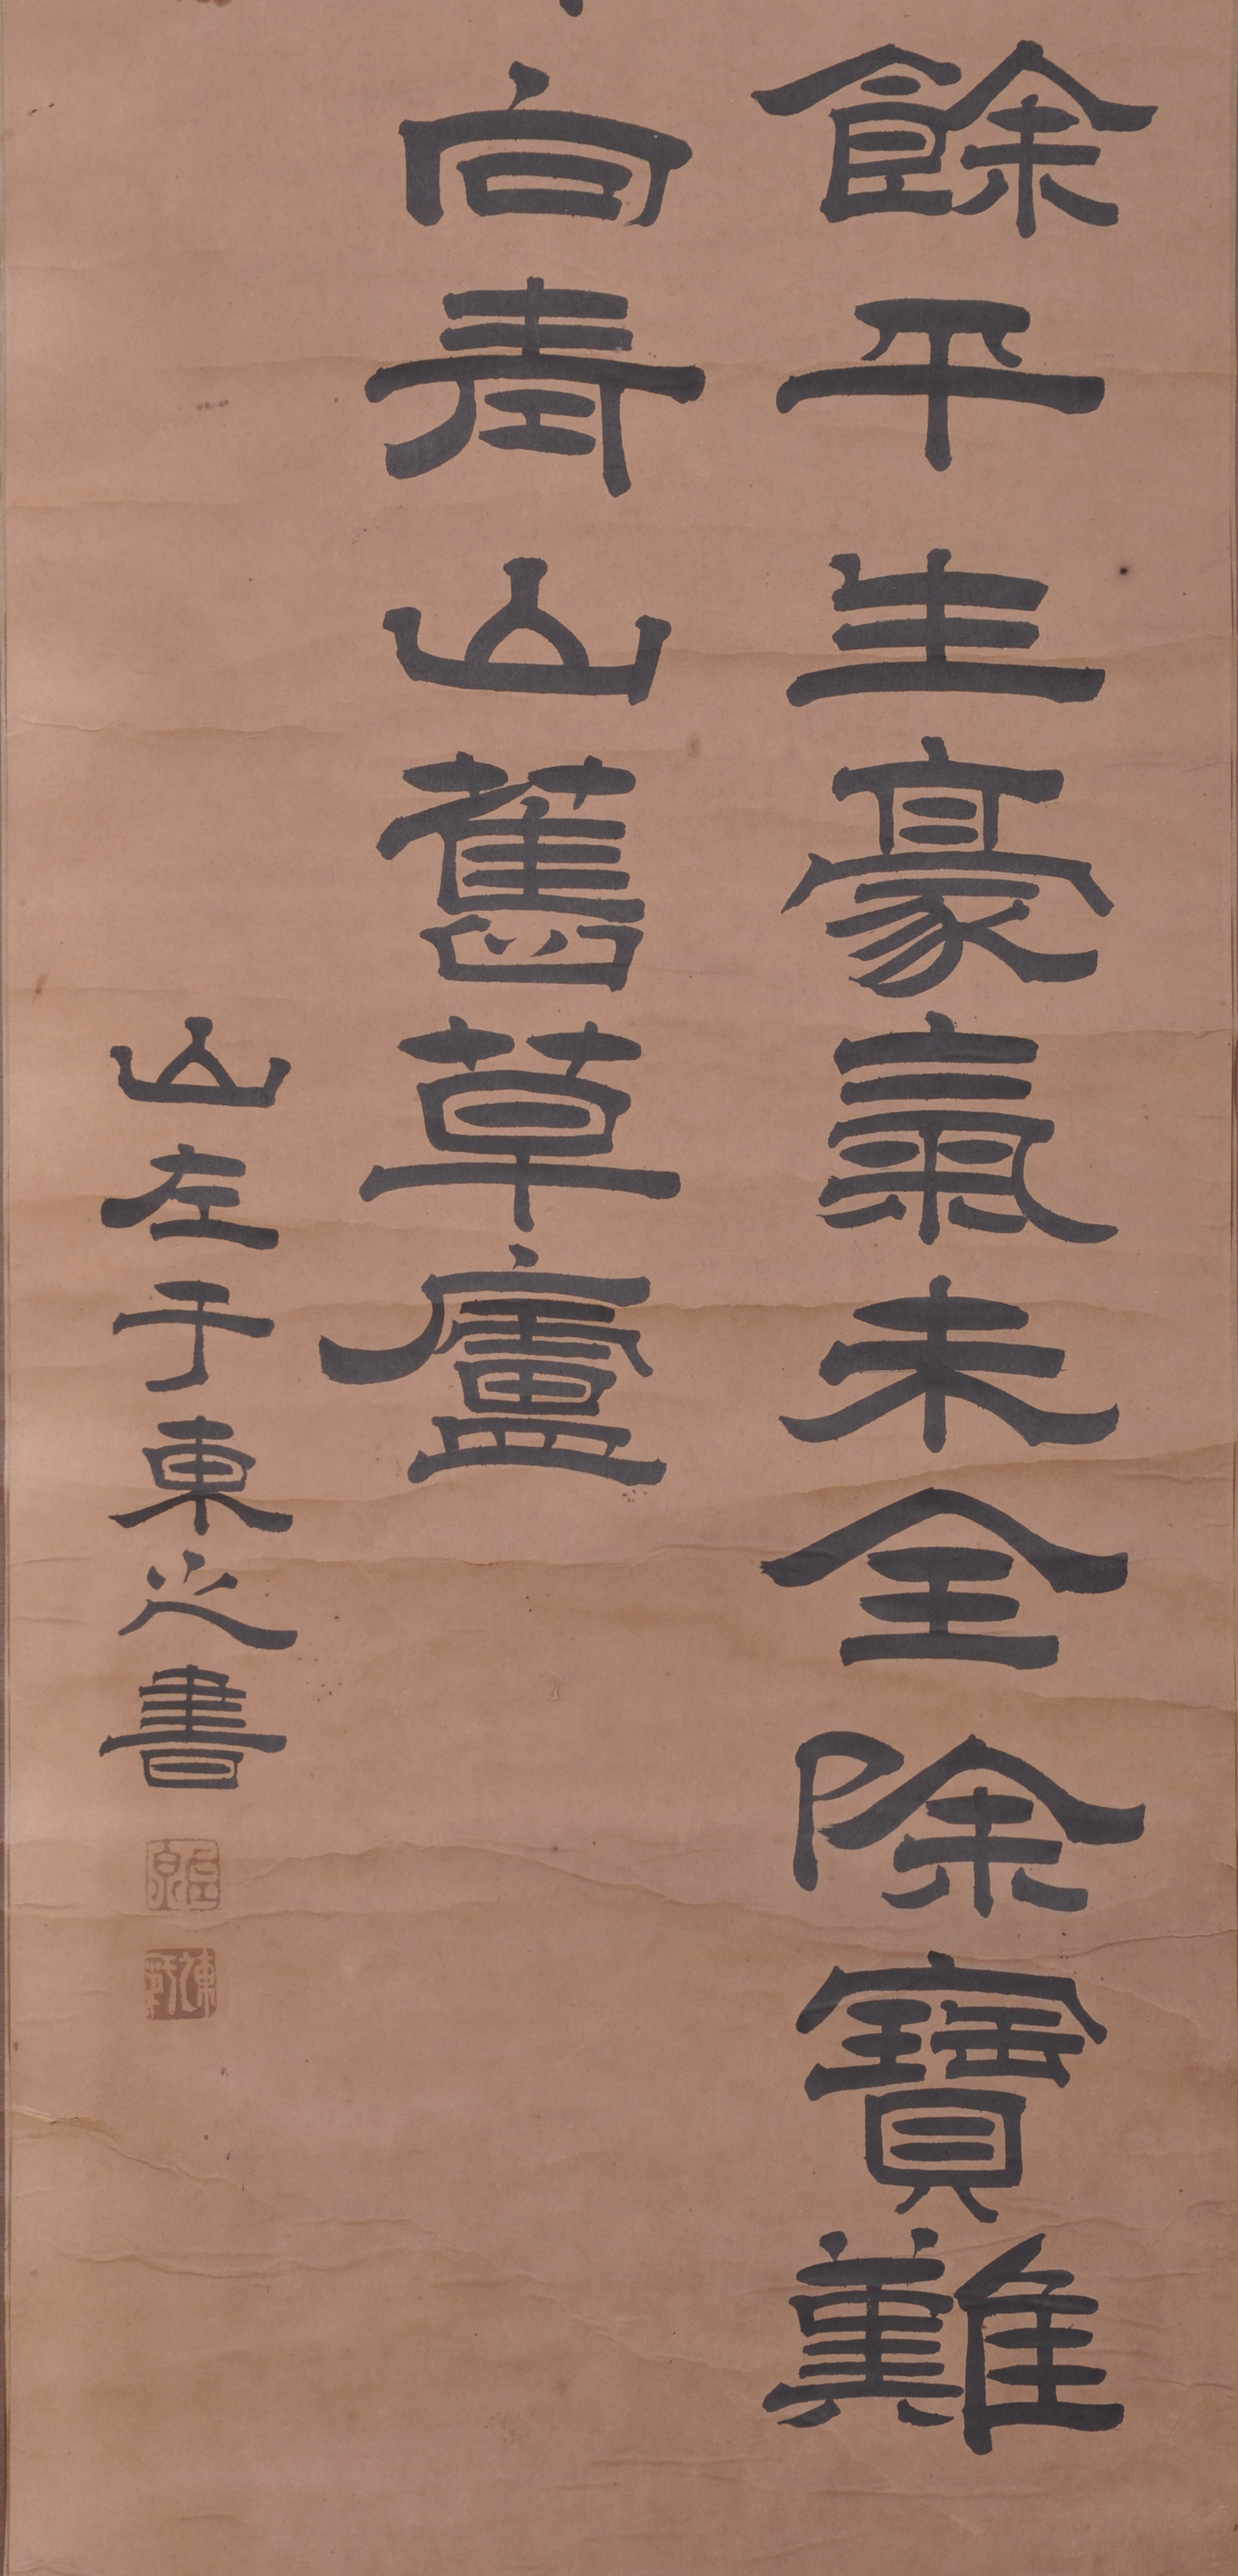 餘平生豪氣未全除寶難
向青山舊草廬
山左于東之書